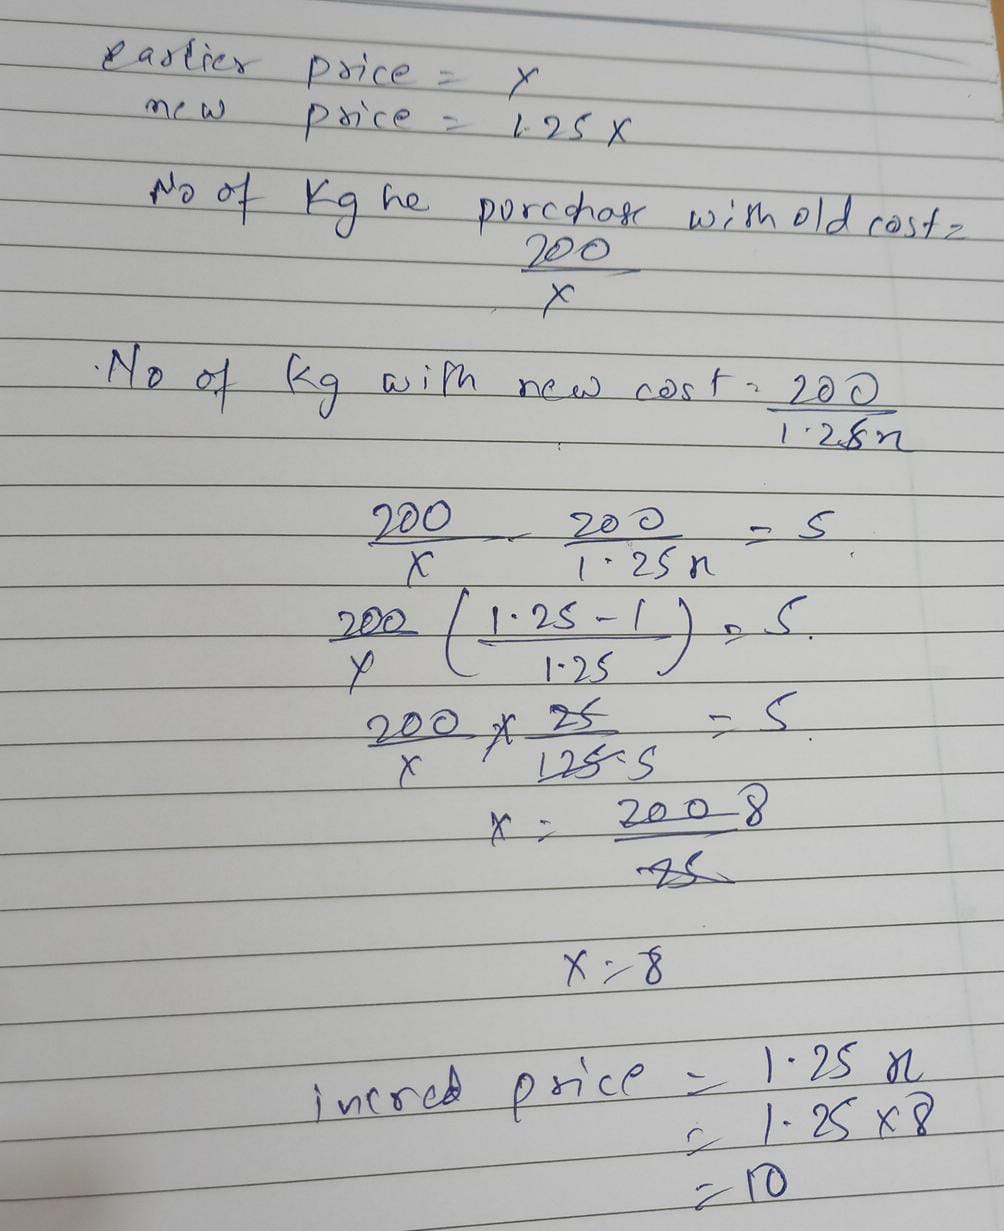 earlier price = x
new price = 1.25 x
No of Kg he porchase with old cost =
200
x
No of Kg with new cost = 200
1.25x
200/x - 200/1.25x = 5
200/x (1.25 - 1/1.25) = 5.
200/x x 25/125 5 = 5
x = 200 8/25
x = 8
incred price = 1.25 x
= 1.25 x 8
= 10